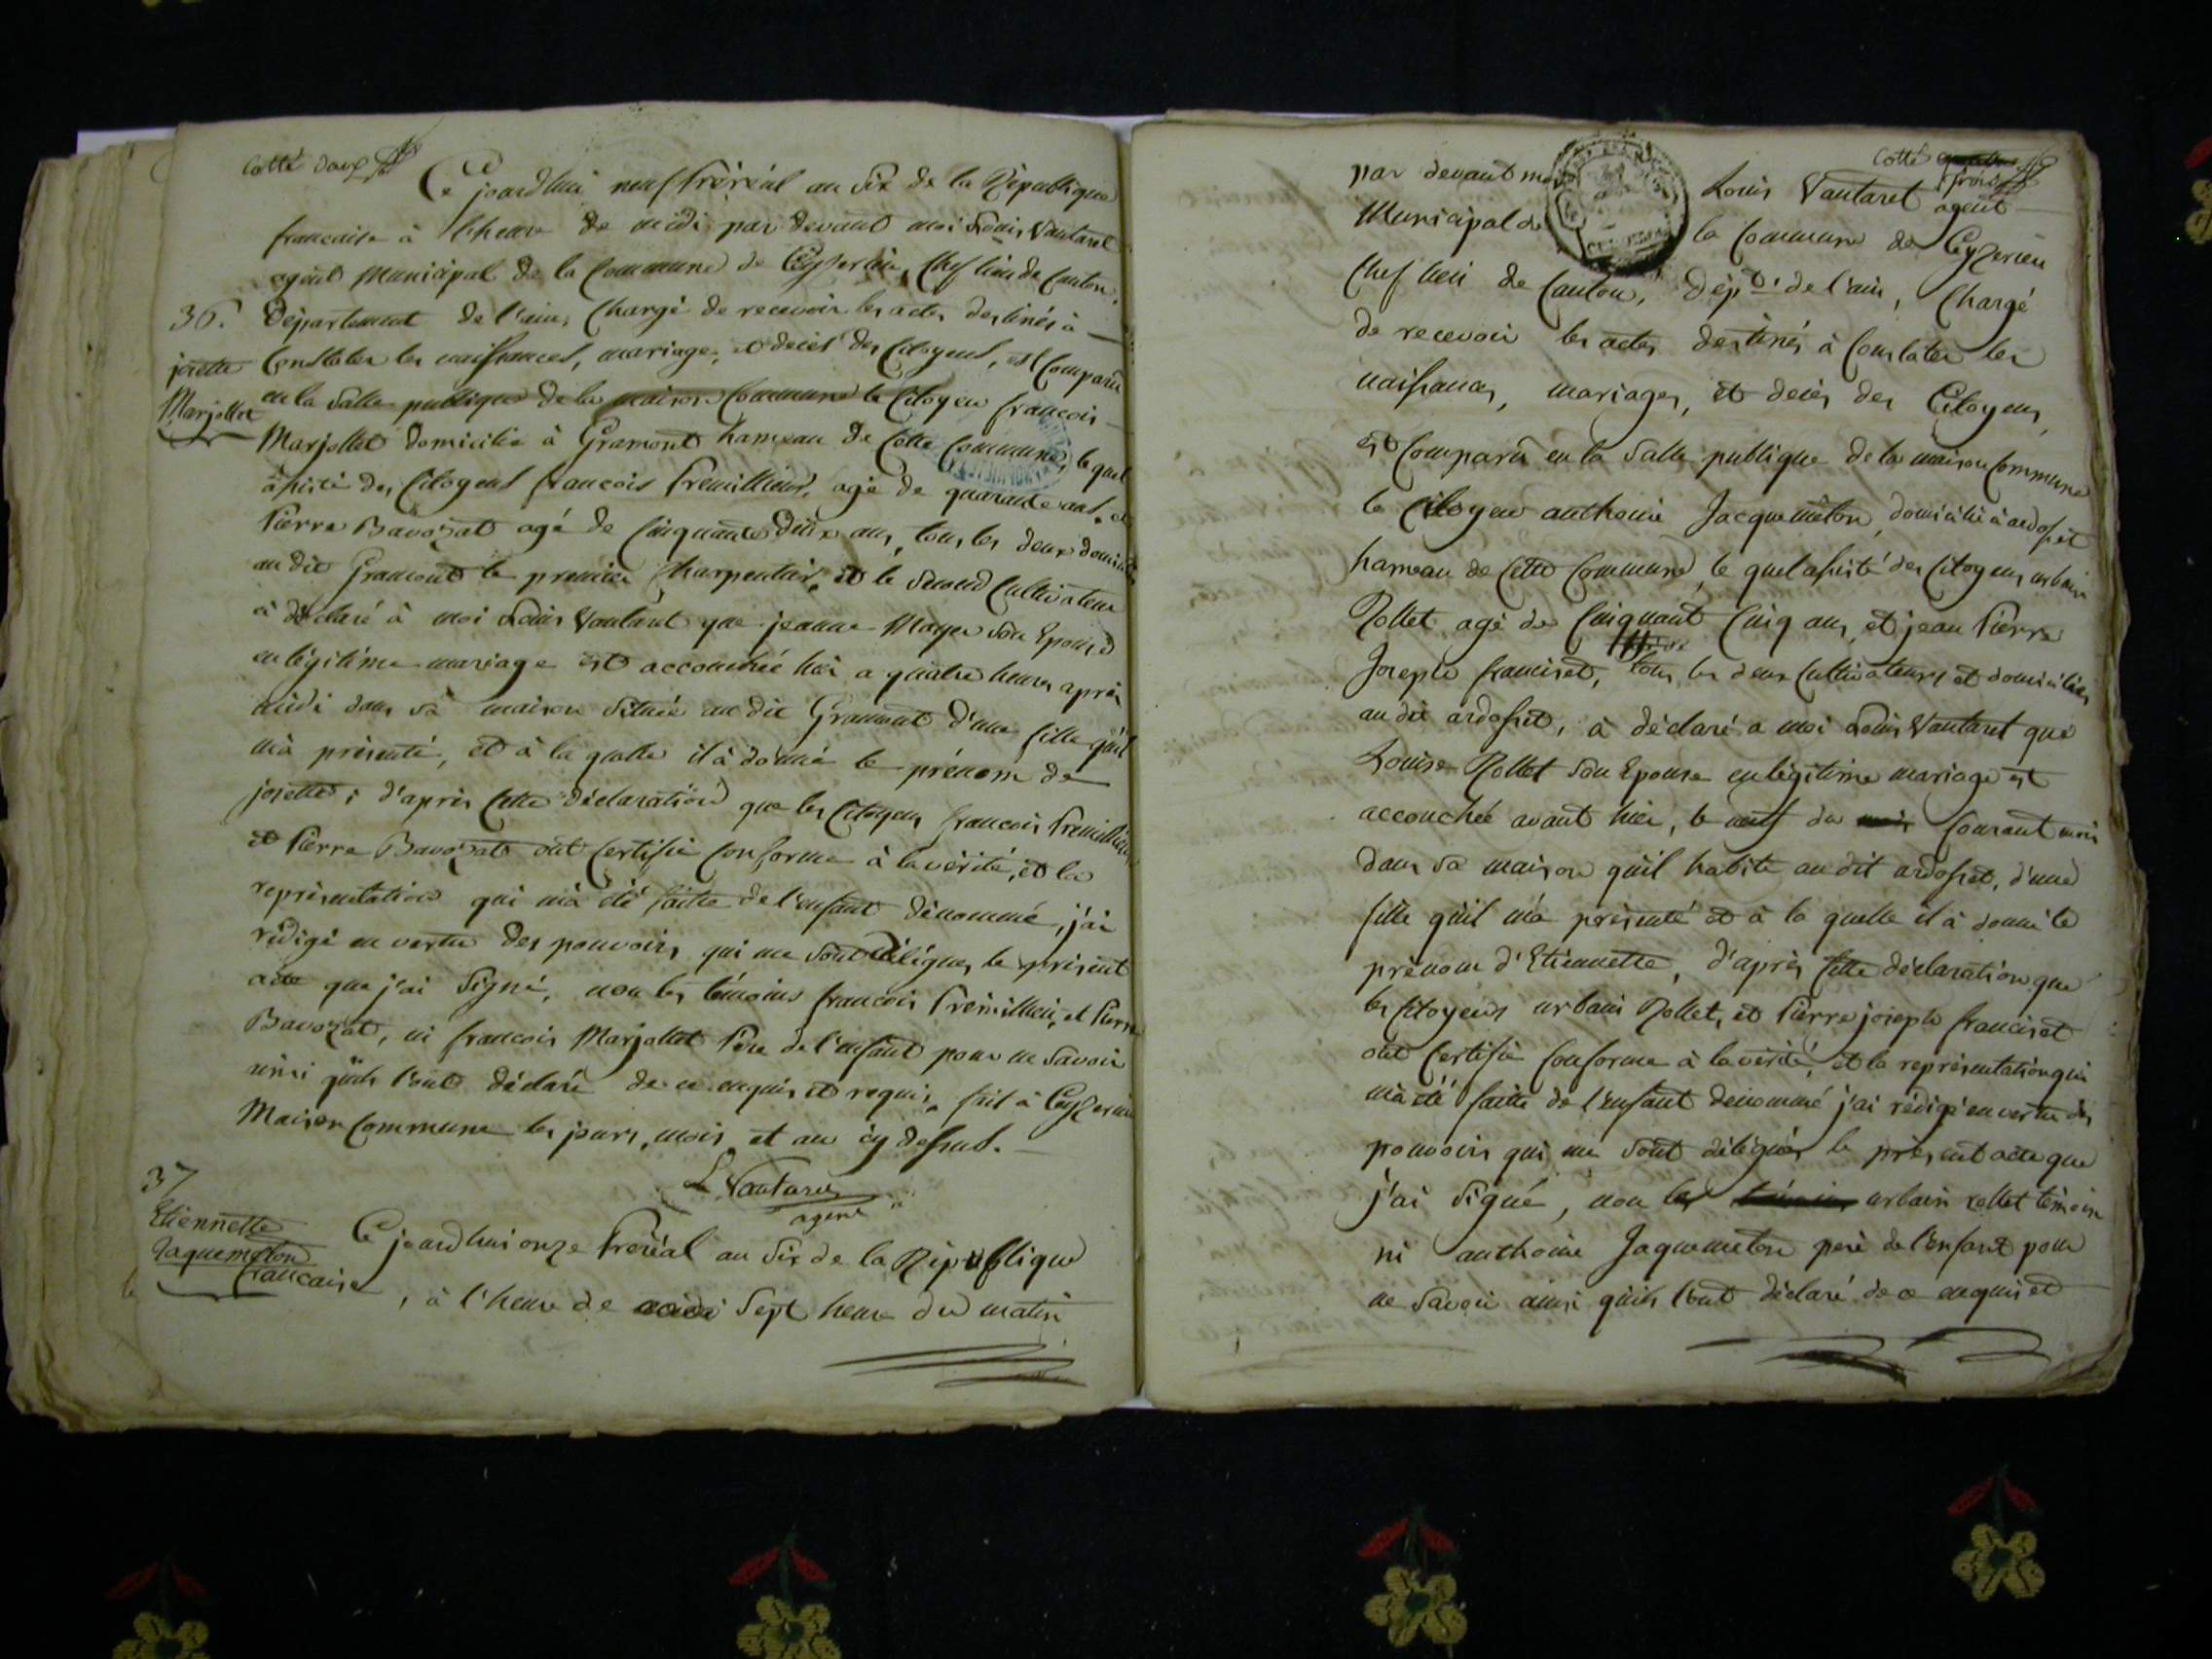 Cotté deux
Ce jourdhui neuf floréal an Six de la République
francaise à lheure de midi par devant moi Louis Vautaret
agent Municipal de la Commune de Ceyzerieu, Chef lieu de Canton,
36. Département de l'ain, Chargé de recevoir les actes destinés à
josette Constater les naissances, mariages, et decès des Citoyens, est Comparu
Marjollet en la Salle publique de la maison Commune le Citoyen francois
Marjollet domicilié à Gramont hameau de Cette Commune, le quel
assisté des Citoyens francois Premillieu, agé de quarante ans, et
Pierre Bavozat agé de Cinquante deux ans, tous les deux domiciliés
au dit Gramont le premier Charpentier, et le Second Cultivateur
à déclaré à moi Louis Vautaret que jeanne Mayer Son Epouse
en légitime mariage est accouchée hier a quatre heures après
midi dans sà maison située au dit Gramont d'une fille qu'il
m'à présenté, et à la quelle il à donné le prénom de
josette; d'après Cette déclaration que les Citoyens francois Premillieu
et Pierre Bavozat ont Certifié Conforme à la vérité, et la
représentation qui m'à été faitte de l'enfant dénommé, j'ai
rédigé en vertu des pouvoirs qui me Sont délégués le présent
acte que j'ai Signé, non les témoins francois Prémillieu, et Pierre
Bavozat, ni francois Marjollet Père de l'enfant pour ne Savoir
ainsi qu'ils l'ont déclaré de ce enquis et requis, fait à Ceyzerieu
Maison Commune les jours, mois et an cy dessus.
L. Vautaret
agent
37
Etiennette
Jaquemeton
Ce jourdhui onze floréal an Six de la République
francaise, à l'heure de Sept heure du matin
Cotté trois
par devant moi Louis Vautaret agent
Municipal de la Commune de Ceyzerieu
Chef lieu de Canton, dépt. de l'ain, Chargé
de recevoir les actes destinés à Constater les
naissances, mariages, et decès des Citoyens,
est Comparu en la Salle publique de la maison Commune
le Citoyen anthoine Jacquemeton, domicilié à ardosset
hameau de Cette Commune, le quel assisté des Citoyens urbain
Rollet, agé de Cinquant Cinq ans, et jean Pierre
Joseph franciset, tous les deux Cultivateurs et domiciliés
au dit ardosset, à déclaré a moi Louis Vautaret que
Louise Rollet Son Epouse en légitime mariage est
accouchée avant hier, le neuf du mois Courant mois
dans sa maison qu'il habite au dit ardosset, d'une
fille qu'il m'a présenté et à la quelle il à donné le
prénom d'Etiennette, d'après Cette déclaration que
les Citoyens urbain Rollet, et Pierre joseph franciset
ont Certifié Conforme à la vérité, et la représentation qui
m'à été faitte de l'enfant dénommé j'ai rédigé en vertu des
pouvoirs qui me sont délégués le présent acte que
j'ai Signé, non urbain rollet témoin
ni anthoine Jaquemeton père de l'enfant pour
ne Savoir ainsi qu'ils l'ont déclaré de ce enquis et